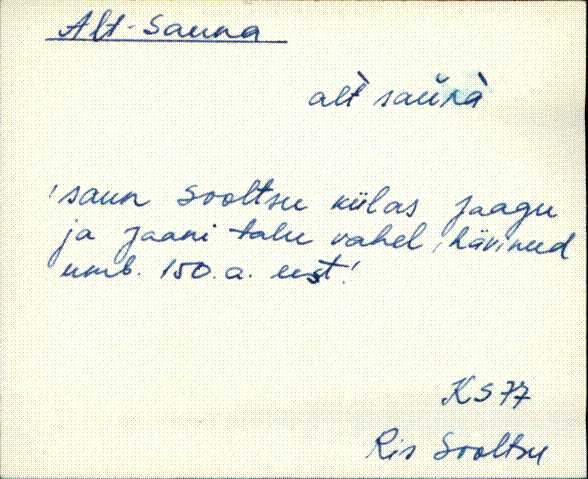 Alt-Sauna
alt̀ saŭnà
'saun Sooltsu külas Jaagu
ja Jaani talu vahel, hävinud
umb. 150. a. eest'
KS 77
Ris Sooltsu